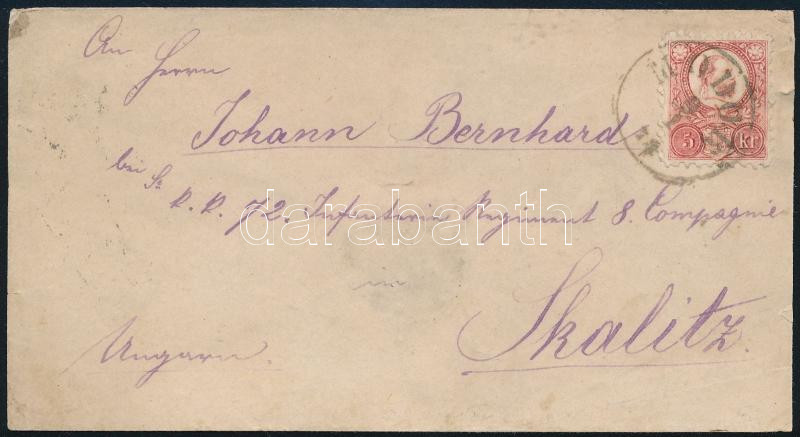 An
Herrn
Johann Bernhard
bei Sr.
k. k. 72. Infenterie Regiment 8. Compagnie
in
Skalitz.
Ungarn.
5 kr
darabanth